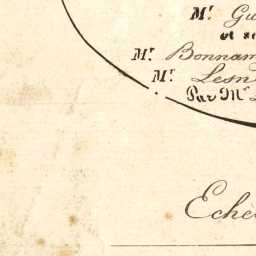 Mr. Gu
et se
Mr. Bonnam
Mr. Lesn
Par Mr.
Eche